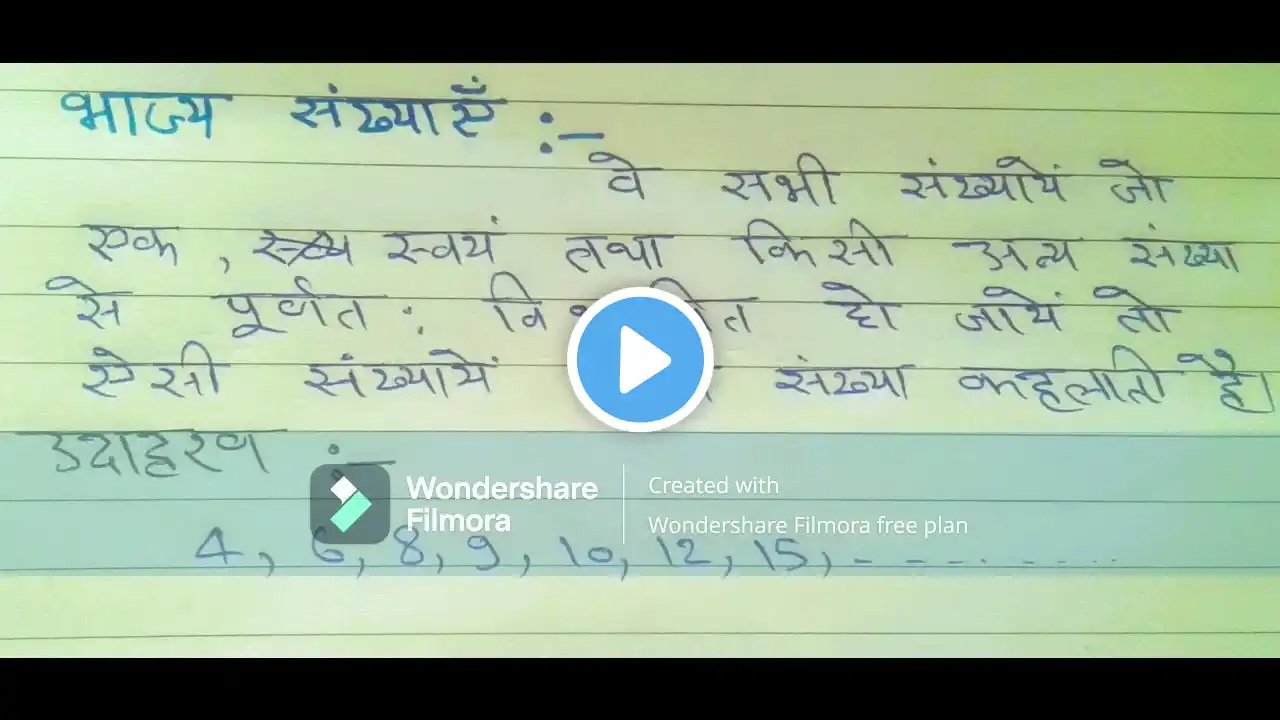 भाज्य संख्याएँ :-
वे सभी संख्यायें जो
एक, स्वयं तथा किसी अन्य संख्या
से पूर्णत: हो जायें तो
ऐसी संख्यायें संख्या कहलाती है।
उदाहरण :-
Wondershare Filmora
Created with
Wondershare Filmora free plan
4, 6, 8, 9, 10, 12, 15, - - - . - . . .